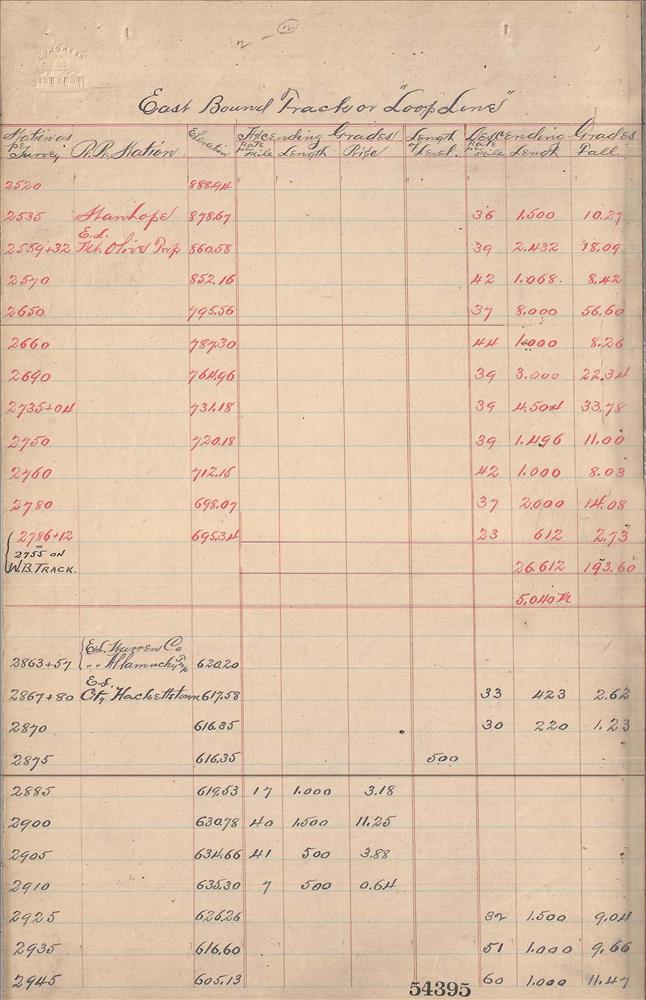 CONGRESS
East Bound Track or "Loop Line"
Station as per Survey R.R. Station Elevation Ascending Grades Length of Level. Descending Grades
Rate per Mile Length Rise Rate per Mile Length Fall.
2520 888.94
2535 Stanhope 878.67 36 1.500 10.27
2559+32 E.L. Mt. Olive Twp 860.58 39 2.432 18.09
2570 852.16 42 1.068. 8.42
2650 795.56 37 8.000 56.60
2660 787.30 44 1.000 8.26
2690 764.96 39 3.000 22.34
2735+04 731.18 39 4.504 33.78
2750 720.18 39 1.496 11.00
2760 712.15 42 1.000 8.03
2780 698.07 37 2.000 14.08
2786+12 695.34 23 612 2.73
2755 on
W.B. Track. 26.612 193.60
5.040 M
E.L. Warren Co
2863+57 " " Allamuchy Twp 620.20
E.L.
2867+80 Cty Hackettstown 617.58 33 423 2.62
2870 616.35 30 220 1.23
2875 616.35 500
2885 619.53 17 1.000 3.18
2900 630.78 40 1.500 11.25
2905 634.66 41 500 3.88
2910 635.30 7 500 0.64
2925 626.26 32 1.500 9.04
2935 616.60 51 1.000 9.66
2945 605.13 60 1.000 11.47
54395